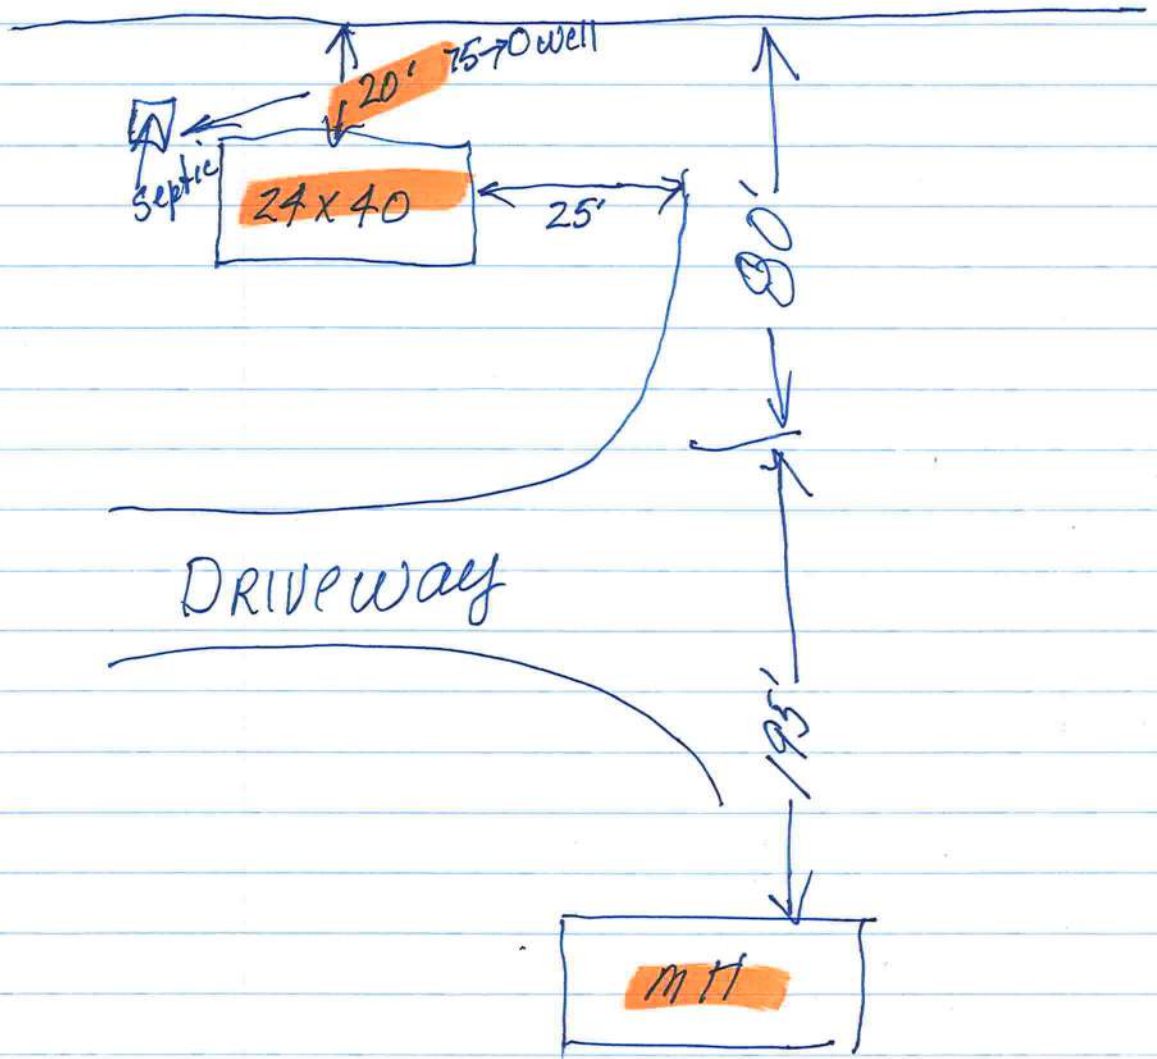 20' 75→O well
septic
24 x 40
25'
80'
DRIVEWAY
195'
MH